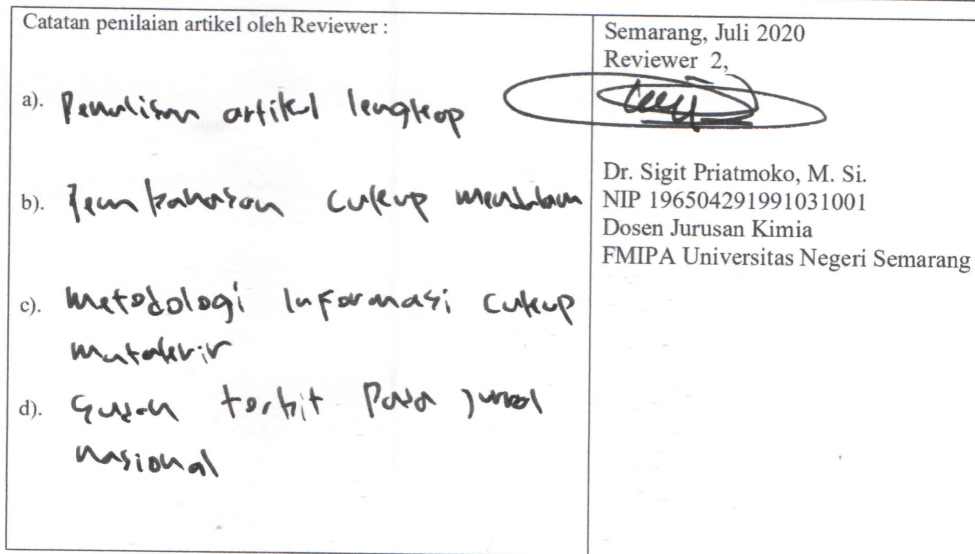 Catatan penilaian artikel oleh Reviewer :
a). Penulisan artikel lengkap
b). Pembahasan cukup mendalam
c). Metodologi Informasi cukup
mutakhir
d). Sudah terbit pada jurnal
nasional
Semarang, Juli 2020
Reviewer 2,
Dr. Sigit Priatmoko, M. Si.
NIP 196504291991031001
Dosen Jurusan Kimia
FMIPA Universitas Negeri Semarang